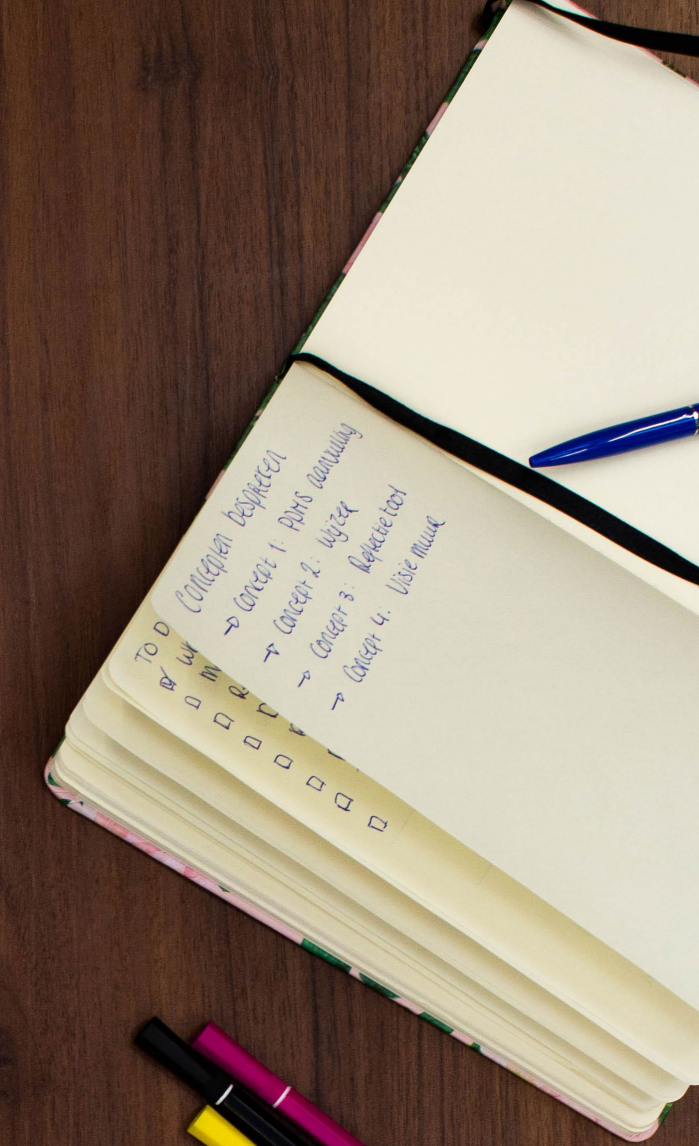 Concepten bespreken
→ Concept 1: PDMS aanvulling
→ Concept 2: Wijzer
→ Concept 3: Reflectie tool
→ Concept 4. Visie muur
TO D